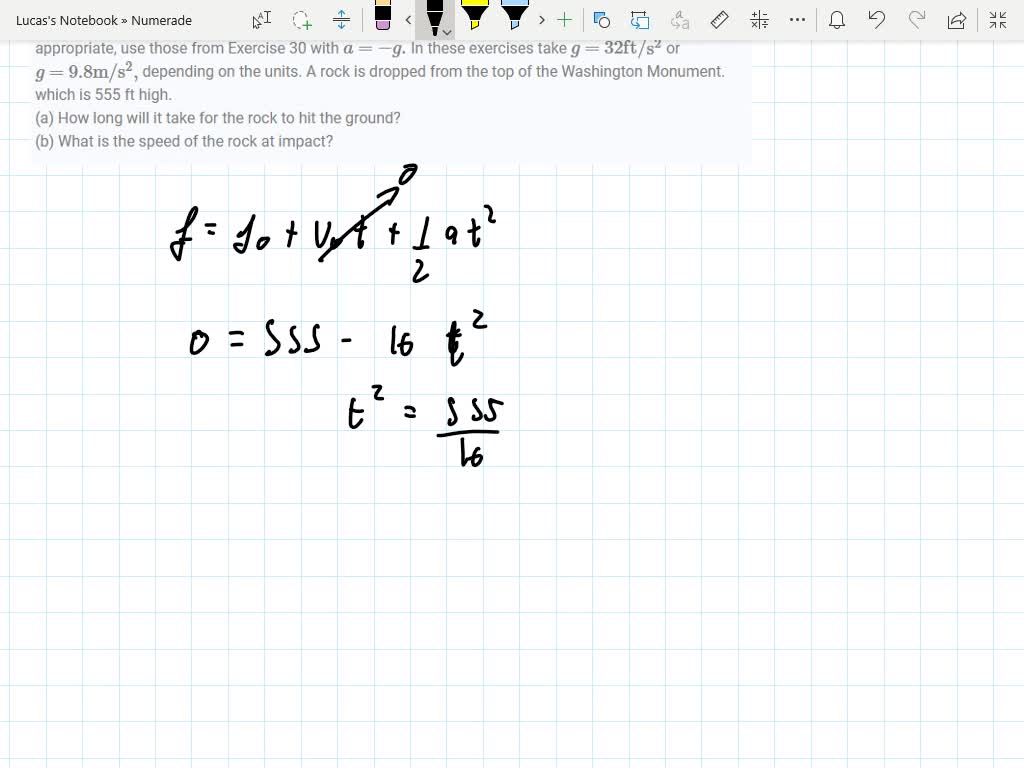 Lucas's Notebook » Numerade
appropriate, use those from Exercise 30 with a = −g. In these exercises take g = 32ft/s² or
g = 9.8m/s², depending on the units. A rock is dropped from the top of the Washington Monument.
which is 555 ft high.
(a) How long will it take for the rock to hit the ground?
(b) What is the speed of the rock at impact?
0
y = y₀ + v₀t + 1/2 at²
0 = 555 - 16 t²
t² = 555/16